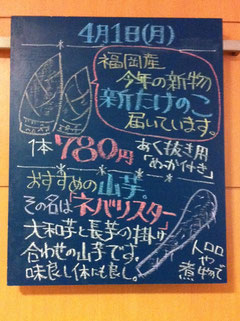 4月1日(月)
福岡産
今年の新物
新たけのこ
届いています。
1本 780円
あく抜き用
「ぬか付き」
おすすめの山芋。
その名は「ネバリスター」
大和芋と長芋の掛け
合わせの山芋です。
味良し体にも良し。
や
煮物で